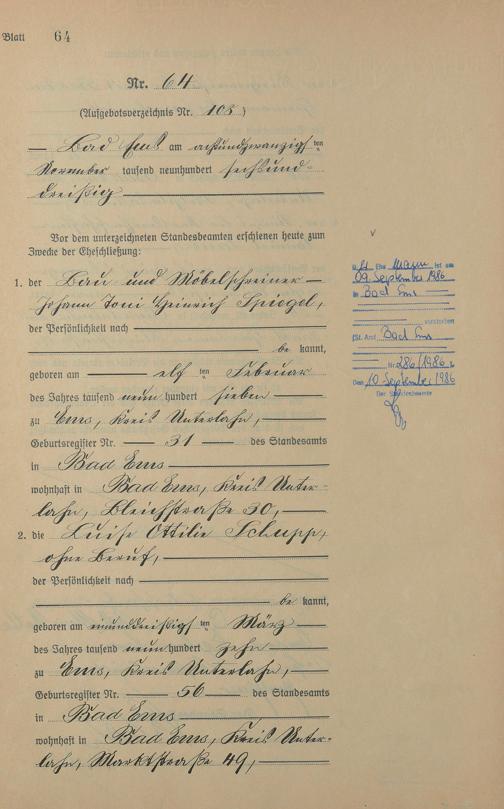 Blatt 64
Nr. 64
(Aufgebotsverzeichnis Nr. 108)
Bad Ems am achtundzwanzigsten
November tausend neunhundert sechsund-
dreißig
Vor dem unterzeichneten Standesbeamten erschienen heute zum
Zwecke der Eheschließung:
1. der Bau und Möbelschreiner
Johann Toni Heinrich Spiegel,
der Persönlichkeit nach
be kannt,
geboren am elften Februar
des Jahres tausend neun hundert sieben
zu Ems, Kreis Unterlahn,
Geburtsregister Nr. 31 des Standesamts
in Bad Ems
wohnhaft in Bad Ems, Kreis Unter-
lahn, Bleichstraße 30,
2. die Luise Ottilie Schupp,
ohne Beruf,
der Persönlichkeit nach
be kannt,
geboren am einunddreißigsten März
des Jahres tausend neun hundert zehn
zu Ems, Kreis Unterlahn,
Geburtsregister Nr. 56 des Standesamts
in Bad Ems
wohnhaft in Bad Ems, Kreis Unter-
lahn, Marktstraße 49,
Ehe Mann ist am
09. September 1986
in Bad Ems
verstorben
(St. Amt Bad Ems
Nr. 286/1986
Den 10. September 1986
Der Standesbeamte